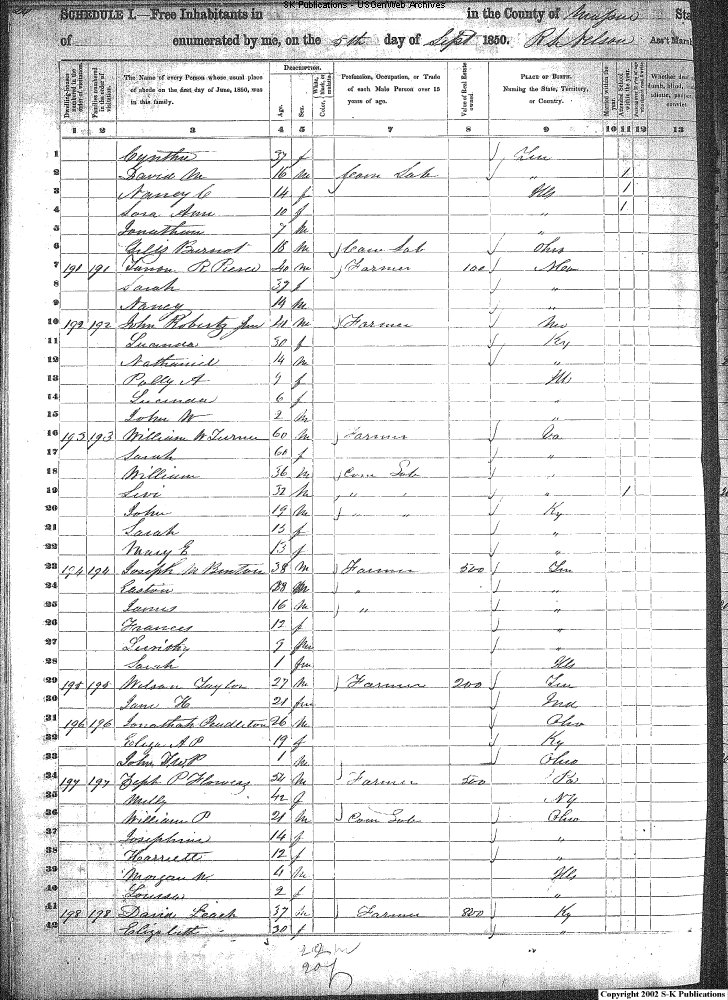 SK Publications - USGenWeb Archives
SCHEDULE I.—Free Inhabitants in in the County of Sta
of enumerated by me, on the 5th day of Sept 1850. R Nelson Ass't Marsh
Dwelling-houses numbered in the order of visitation.
Families numbered in the order of visitation.
The Name of every Person whose usual place of abode on the first day of June, 1850, was in this family.
Description.
Age.
Sex.
White, black, or mulatto. Color
Profession, Occupation, or Trade of each Male Person over 15 years of age.
Value of Real Estate owned
Place of Birth. Naming the State, Territory, or Country.
Married within the year.
Attended School within the year.
Whether deaf dumb, blind, idiotic, pauper, convict
1 2 3 4 5 6 7 8 9 10 11 12 13
1 Cynthia 37 f
2 David M 16 m Com Lab " 1
3 Nancy C 14 f Ills 1
4 Sara Ann 10 f " 1
5 Jonathan 7 m "
6 Burnot 18 m Com Lab Ohio
7 191 191 R Pierce 40 m Farmer 100
8 Sarah 37 f "
9 Nancy 14 m "
10 192 192 John Roberts 41 m Farmer Mo
11 Lucinda 30 f Ky
12 Nathaniel 14 m "
13 Polly A 9 f Ills
14 Lucinda 6 f "
15 John W 2 m "
16 193 193 William W Turner 60 m Farmer Va
17 Sarah 60 f "
18 William 36 m Com Lab "
19 Levi 32 m " " " 1
20 John 19 m " " Ky
21 Sarah 15 f "
22 Mary E 13 f "
23 194 194 Joseph M Benton 38 m Farmer 500 Tn
24 Easton 38 "
25 James 16 m " "
26 Frances 12 f "
27 9 "
28 Sarah 1 Ills
29 195 195 Wilson Taylor 27 m Farmer 200 Tn
30 Jane H 21 Ind
31 196 196 Jonathan Pendleton 26 m Ohio
32 Eliza A P 19 f Ky
33 John P 1 m Ohio
34 197 197 Zeph P Flowers 54 m Farmer 500 Pa
35 Milly 42 f NY
36 William P 21 m Com Lab Ohio
37 Josephine 14 f "
38 Harriett 12 f "
39 Morgan W 4 m Ills
40 Louisa 2 f "
41 198 198 David Leach 37 m Farmer 800 Ky
42 Elizabeth 30 f "
22 m
20 f
Copyright 2002 S-K Publications